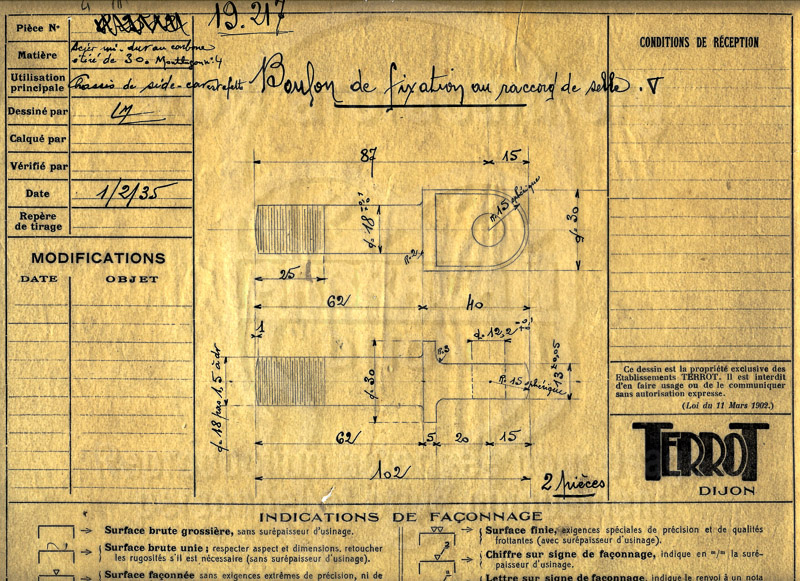 Pièce N°
19.217
Matière
Acier mi-dur au carbone
étiré de 30. Montluçon n°4
Utilisation
principale
Chassis de side-car
Dessiné par
Calqué par
Vérifié par
Date
1/2/35
Repère
de tirage
MODIFICATIONS
DATE OBJET
Boulon de fixation au raccord de selle.
CONDITIONS DE RÉCEPTION
87
15
R.15 sphérique
d.18
d.30
R.2
25
62
40
1
d.12,2
R.3
d.18 pas 1,5 à dr
d.30
13 ±0,05
R.15 sphérique
62
5
20
15
102
2 pièces
Ce dessin est la propriété exclusive des
Etablissements TERROT. Il est interdit
d'en faire usage ou de le communiquer
sans autorisation expresse.
(Loi du 11 Mars 1902.)
TERROT
DIJON
INDICATIONS DE FAÇONNAGE
Surface brute grossière, sans surépaisseur d'usinage.
Surface brute unie ; respecter aspect et dimensions, retoucher
les rugosités s'il est nécessaire (sans surépaisseur d'usinage).
Surface façonnée sans exigences extrêmes de précision, ni de
Surface finie, exigences spéciales de précision et de qualités
frottantes (avec surépaisseur d'usinage).
Chiffre sur signe de façonnage, indique en m/m la suré-
paisseur d'usinage.
Lettre sur signe de façonnage, indique le renvoi à un nota